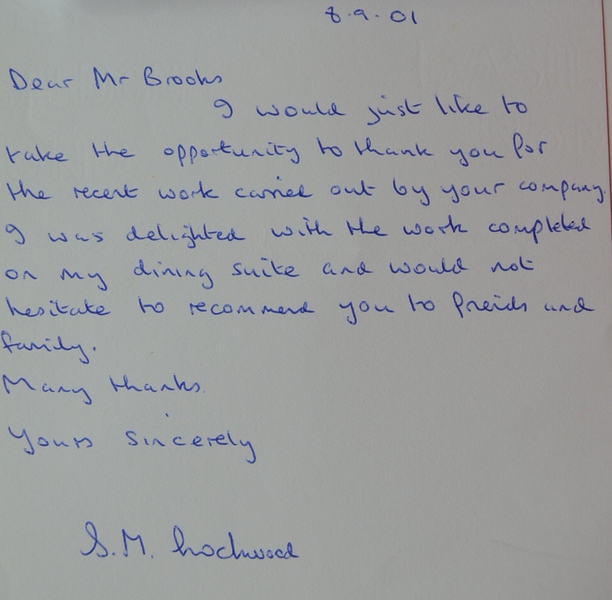 8.9.01
Dear Mr Brooks
I would just like to
take the opportunity to thank you for
the recent work carried out by your company.
I was delighted with the work completed
on my dining suite and would not
hesitate to recommend you to freids and
family.
Many thanks.
Yours sincerely
S.M. Lockwood